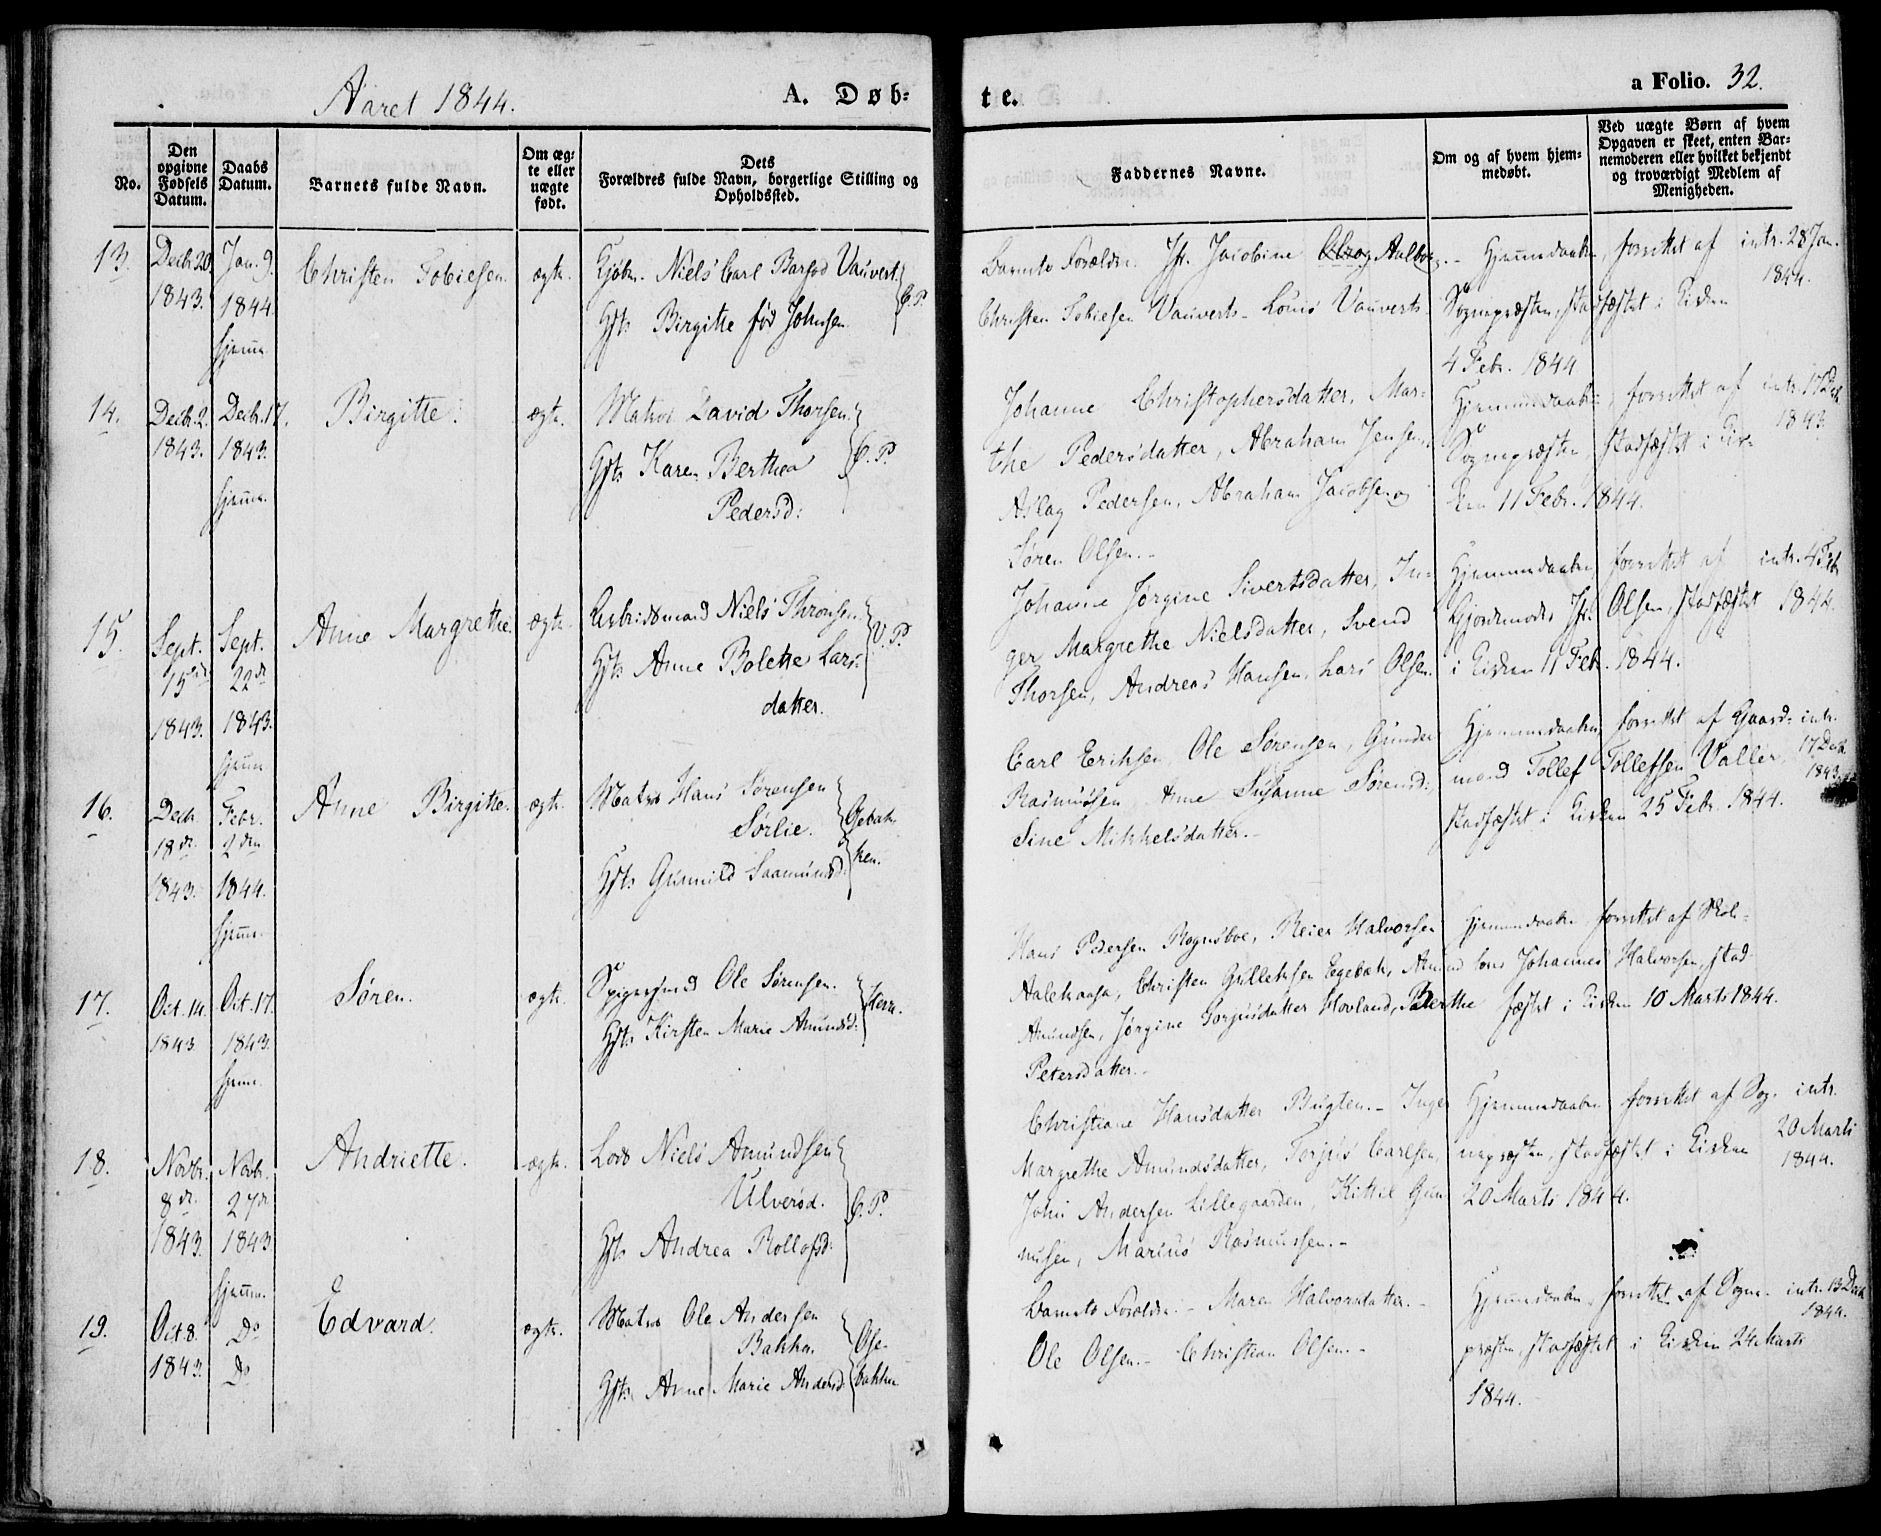 Aaret 1844.
A. Døb-
te.
a Folio. 32.
No.
Den opgivne Fødsels Datum.
Daabs Datum.
Barnets fulde Navn.
Om ægte eller uægte født.
Dets
Forældres fulde Navn, borgerlige Stilling og
Opholdssted.
Faddernes Navne.
Om og af hvem hjem-
medøbt.
Ved uægte Børn af hvem
Opgaven er skeet, enten Bar-
nemoderen eller hvilket bekjendt
og troværdigt Medlem af
Menigheden.
13.
Decbr. 20
1843.
Jan. 9.
1844.
hjemme
Christen Tobiesen
ægte.
Kjøbm. Niels Carl Barfod Vauvert
Hst: Birgitte fød Johnsen
B.P.
Barnets Forældre. Jfr. Jacobine Aalborg.
Christen Tobiesen Vauverts - Louis Vauverts
Hjemmedaaben forrettet af
Sognepræsten, stadfæstet i Kirken
4 Febr. 1844
intr. 28 Jan.
1844.
14.
Decbr. 2.
1843.
Decbr. 17.
1843.
hjemme.
Birgitte.
ægte.
Matros David Thorsen
Hst: Karen Berthea
Pedersd:
B.P.
Johanne Christophersdatter, Mar-
the Pedersdatter, Abraham Jensen,
Aslag Pedersen, Abraham Jacobsen og
Søren Olsen.-
Hjemmedaaben, forrettet af
Sognepræsten, stadfæstet i Kir-
ken 11 Febr. 1844.
intr. 17 Decb.
1843
15.
Sept.
15de
1843.
Sept.
22de
1843.
hjemme
Anne Margrethe.
ægte.
Arbeidsmand Niels Thronsen
Hst: Anne Bolette Lars-
datter.
V.P.
Johanne Jørgine Sivertsdatter, In-
ger Margrethe Nielsdatter, Svend
Thorsen, Andreas Hansen, Lars Olsen.
Hjemmedaaben forrettet af
Gjordemoder Jfr. Olsen, stadfæstet
i Kirken 11 Febr. 1844.
intr. 4 Febr.
1844.
16.
Decb.
18de
1843.
Febr.
2den
1844.
hjemme.
Anne Birgitte.
ægte.
Matros Hans Sørensen
Sørlie.
Hst: Gunnild Saamundsd:
Egebak-
ken.
Carl Eriksen, Ole Sørensen, Gunder
Rasmussen, Anne Susanne Sørensd:
Sine Mikkelsdatter.-
Hjemmedaaben, forrettet af Gaard-
mand Tollef Tollefsen Valler,
stadfæstet i Kirken 25 Febr. 1844.
intr.
17 Decb.
1843.
17.
Oct. 14.
1843
Oct. 17.
1843.
hjemme.
Søren.
ægte.
Ole Sørensen.
Hst: Kirsten Marie Amundsd:
Hans Pedersen Rognsboe, Reier Halvorsen
Christen Gulleksen Egebak, Amund
Amundsen, Jørgine Torjusdatter Hovland, Berthe
Petersdatter.-
Hjemmedaaben forrettet af Skole-
Johannes Halvorsen, stad-
fæstet i Kirken 10 Marts 1844.
18.
Novbr.
8de
1843.
Novbr.
27de
1843
hjemme.
Andriette.
ægte.
Lods Niels Amundsen
Ulverød.
Hst: Andrea Rollofsd:
B.P.
Christiane Hansdatter Bugten.- Inger
Margrethe Amundsdatter, Torjus Carlsen,
John Andersen Lillegaarden, Kittil Gun-
nusen, Marius Rasmussen.-
Hjemmedaaben forrettet af Sog-
nepræsten, stadfæstet i Kirken
20 Marts 1844.
intr.
20 Marts
1844.
19.
Oct. 8.
1843.
Do
Do
Edvard.
ægte.
Matros Ole Andersen
Bakken
Hst: Anne Marie Andersd:
Ose-
bakken
Barnets Forældre.- Maren Halvorsdatter.-
Ole Olsen.- Christian Olsen.-
Hjemmedaaben, forrettet af Sogne-
præsten, stadfæstet i Kirken 24 Marts
1844.
intr. 13 Decb.
1844.